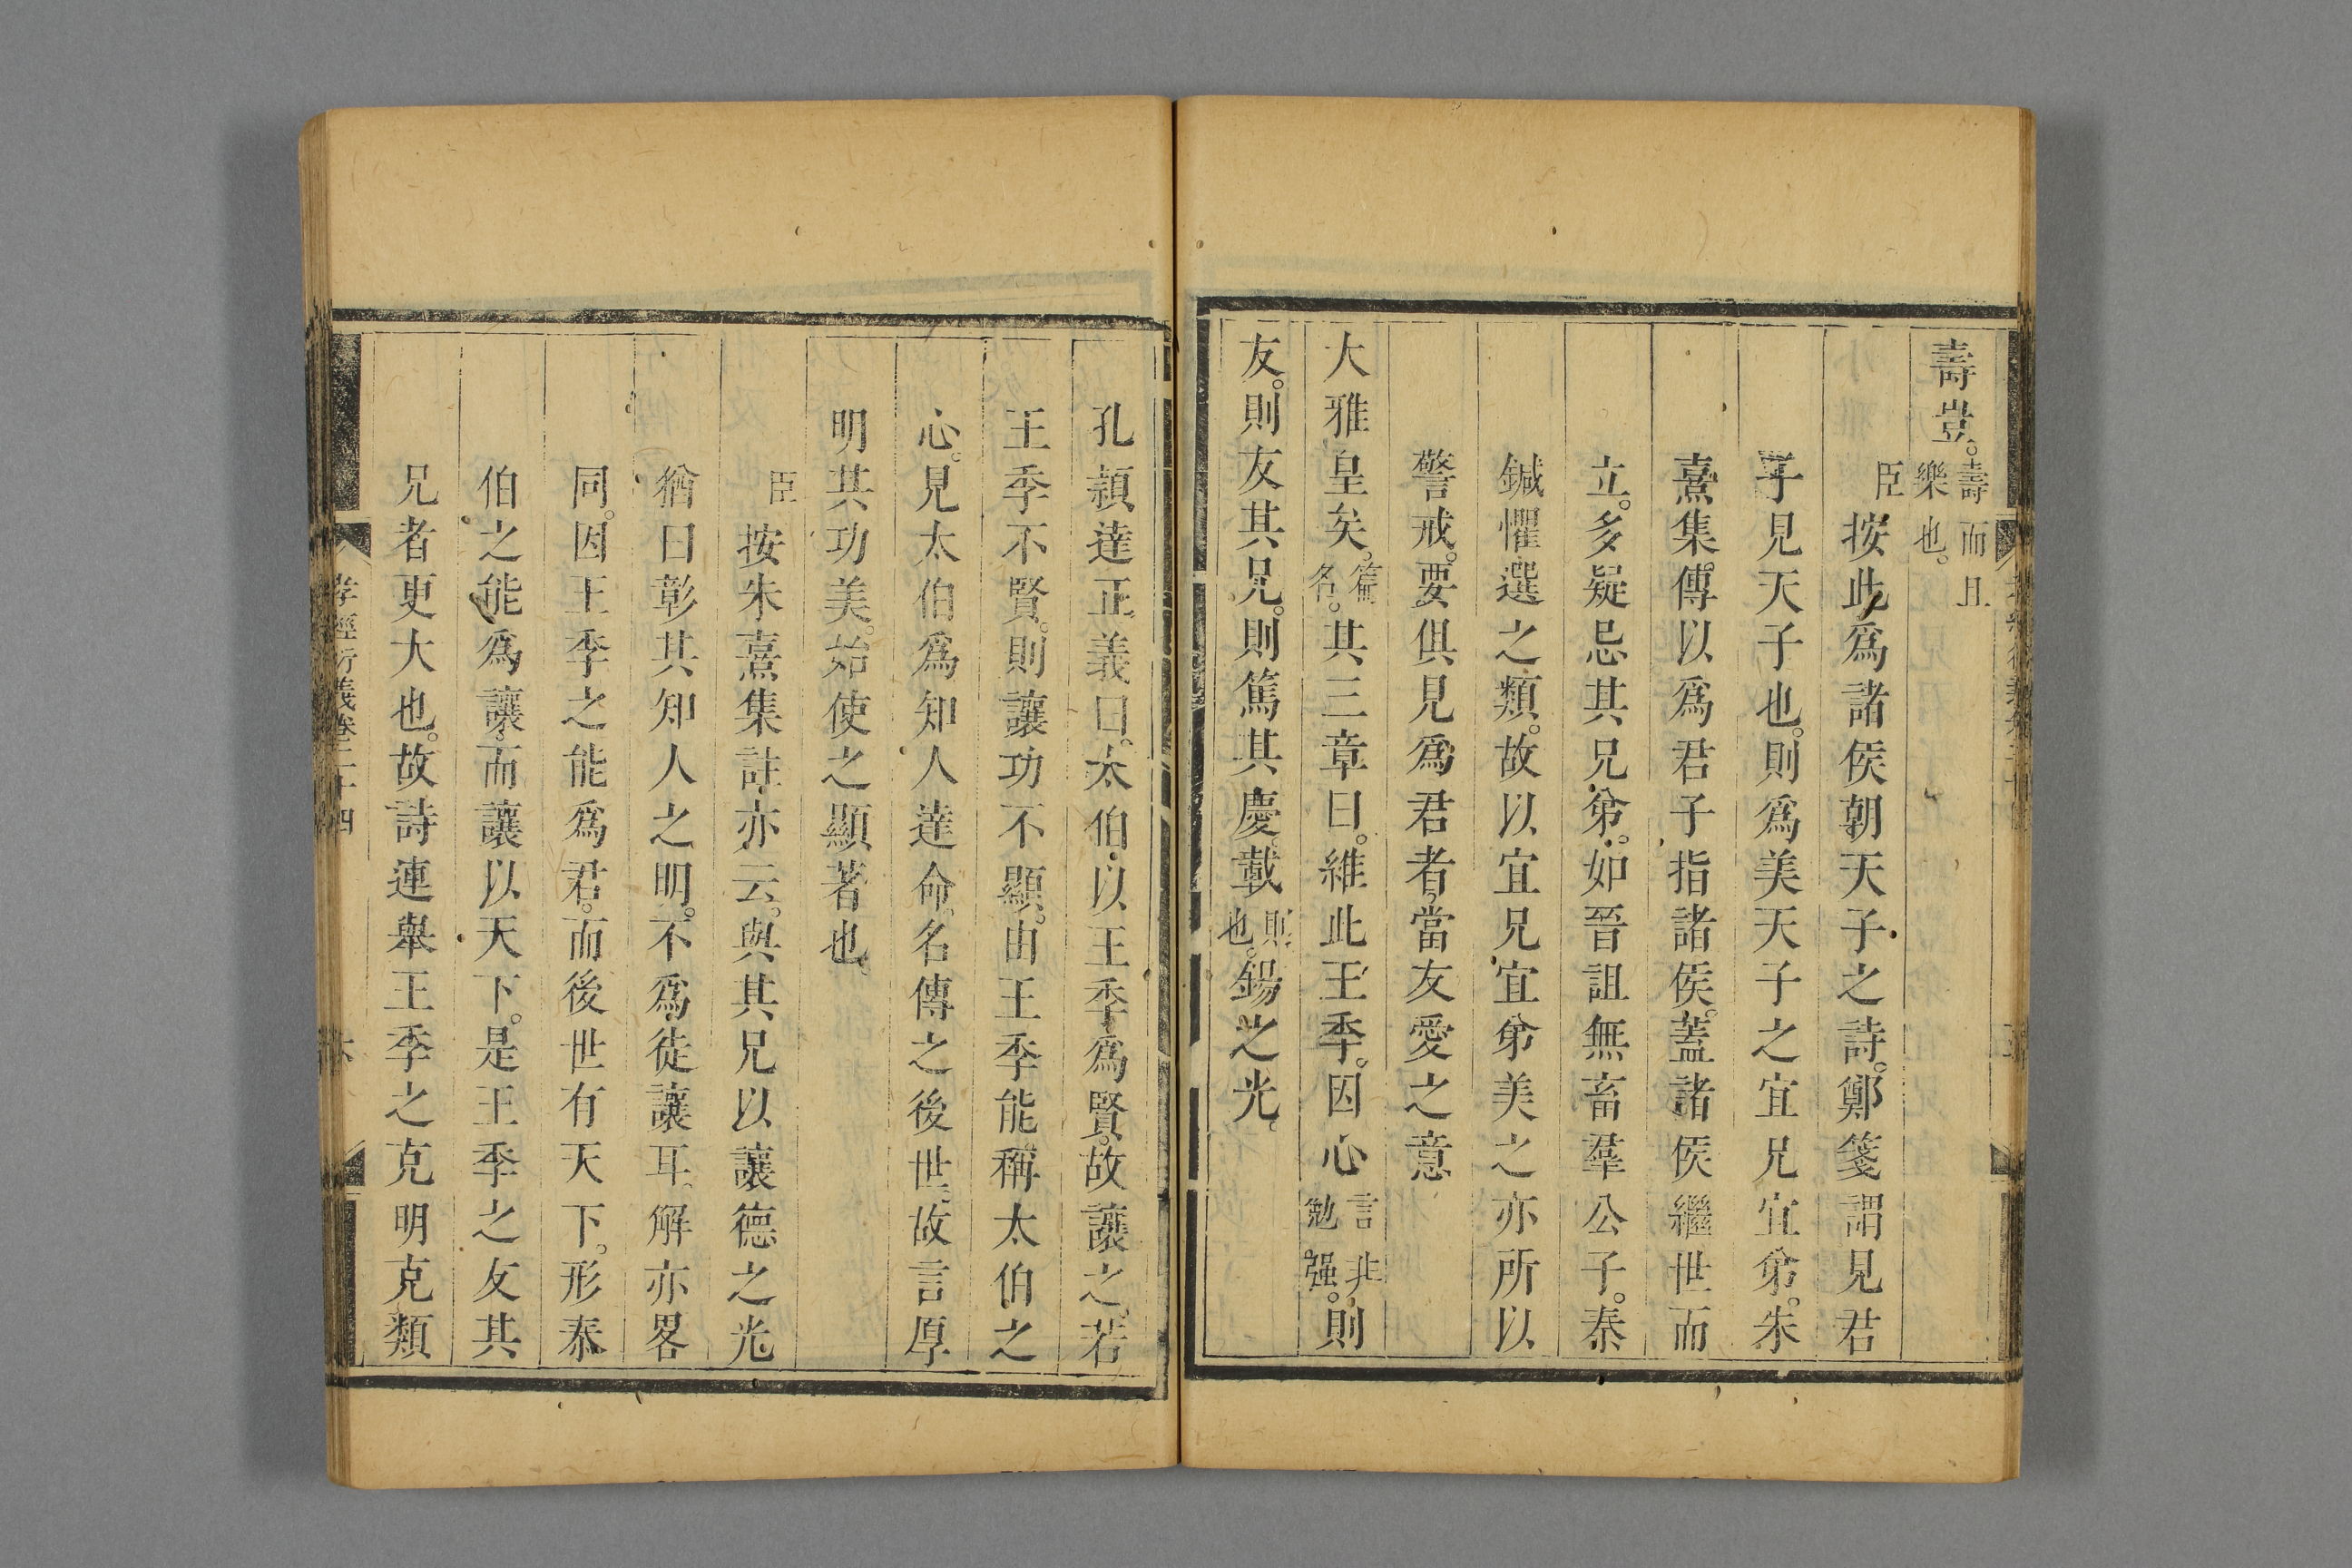 壽豈。壽而且樂也。
臣按此爲諸侯朝天子之詩。鄭箋謂見君
子見天子也。則爲美天子之宜兄宜弟。朱
熹集傳。以爲君子指諸侯。蓋諸侯繼世而
立。多疑忌其兄弟。如晉詛無畜羣公子。秦
鍼懼選之類。故以宜兄宜弟美之亦所以
警戒。要俱見爲君者。當友愛之意
大雅皇矣。篇名。其三章曰。維此王季。因心言非勉强。則
友。則友其兄。則篤其慶。載則也。錫之光。
孔頴達正義曰。太伯以王季爲賢。故讓之。若
王季不賢。則讓功不顯。由王季能稱太伯之
心。見太伯爲知人達命。名傳之後世。故言厚
明其功美。始使之顯著也
臣按朱熹集註亦云。與其兄以讓德之光
猶曰彰其知人之明。不爲徒讓耳。解亦畧
同。因王季之能爲君。而後世有天下。形泰
伯之能爲讓。而讓以天下。是王季之友其
兄者更大也。故詩連舉王季之克明克類
孝經衍義卷二十四